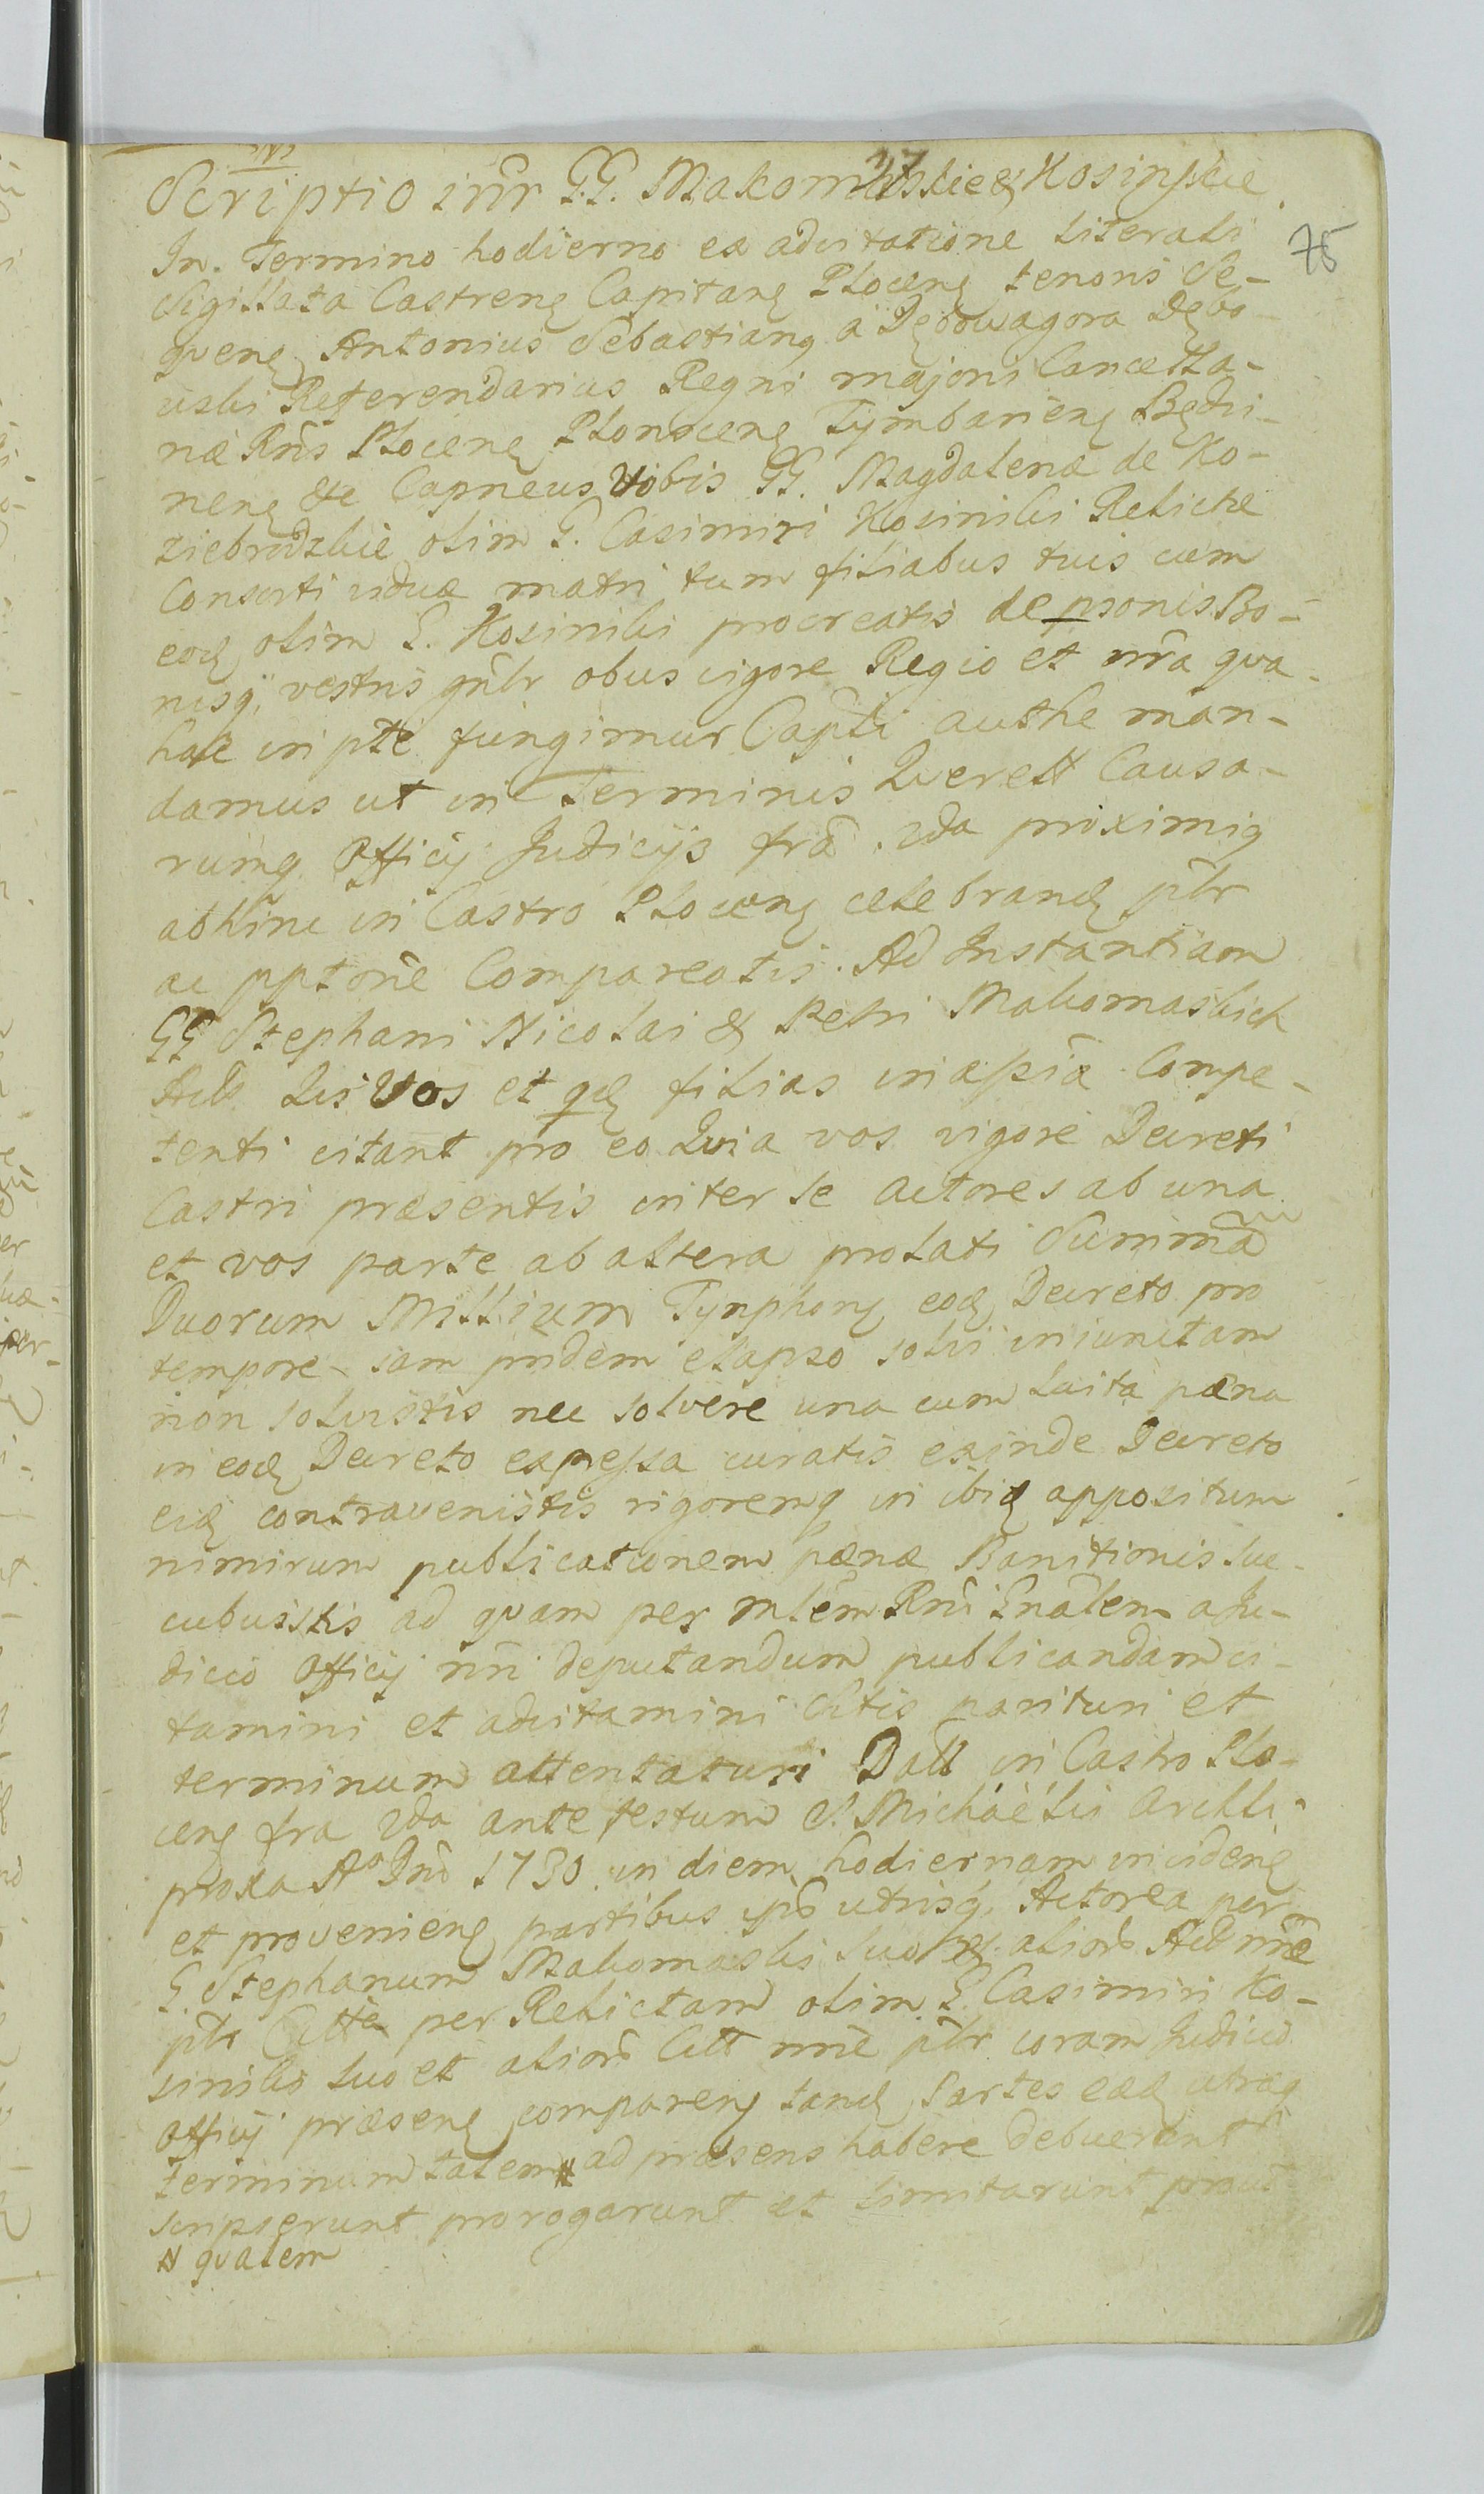 Scriptio inr GG. Makomaskie & Kosinskie
75
In Termino hodierno ex adcitatione literali
Sigillata Castrenẽ Capitanẽ Plocenẽ tenoris Se-
qvenẽ Antonius Sebastianẽ a Dębowagora Dębo-
wski Referendarius Regni majoris Cancella-
riæ Rñs Plocenẽ Plonscenẽ Tymbarienẽ Będzi-
nenẽ &c Capneus Vobis GG. Magdalenæ de Ko-
ziebrodzkie olim G. Casimiri Kosinski Relictæ
Consorti viduæ matri tum filiabus tuis cum
eoď olim G. Kosinski procreatis de psonis Bo-
nisq, vestris gñlr obus vigore Regio et nrã qva
hac in pte fungimur Capli authe man-
damus ut in Terminis Qverell Causa-
rumq Officij Judicijs frã 2da proximiq
abhinc in Castro Plocenẽ celebranď plr
ac pptorie Compareatis. Ad Instantiam
GG Stephani Nicolai & Petri Makomaskich
Act. Qui Vos et qď filias in assia Compe-
tenti citant pro eo Qvia vos vigore Decreti
Castri præsentis inter se actores ab una
et vos parte ab altera prolati Summã
Duorum Millium Tynphonẽ eoď Decreto pro
tempore jam pridem elapso solvi injunctam
non solvistis nec solvere una cum luita pæna
in eoď Decreto expressa curatis exinde Decreto
eiď contravenistis rigoremq in ibiď appositum
nimirum publicationem pænæ Banitionis suc-
cubuistis ad qvam per Mlem Rñi Gnalem a Ju-
dicio Officij nri deputandum publicandam ci-
tamini et adcitamini Citis parituri et
terminum attentaturi Datt in Castro Plo-
cenẽ fra 2da ante festum S. Michaëlis Archli
proxa Aº Dnõ 1730 in diem hodiernam incidenẽ
et provenienẽ partibus ipõ utrisq. Actorea per
G. Stephanum Makomaski suo & alior Act nñe
plr Citta per Relictam olim G. Casimiri Ko-
sinski suo et alior Citt nñe plr coram Judicio
Officij præsenẽ comparenẽ tanď Partes eæď utræq
terminum talem # ad præsens habere debuerunt
scripserunt prorogarunt et limitarunt prout
# qvalem